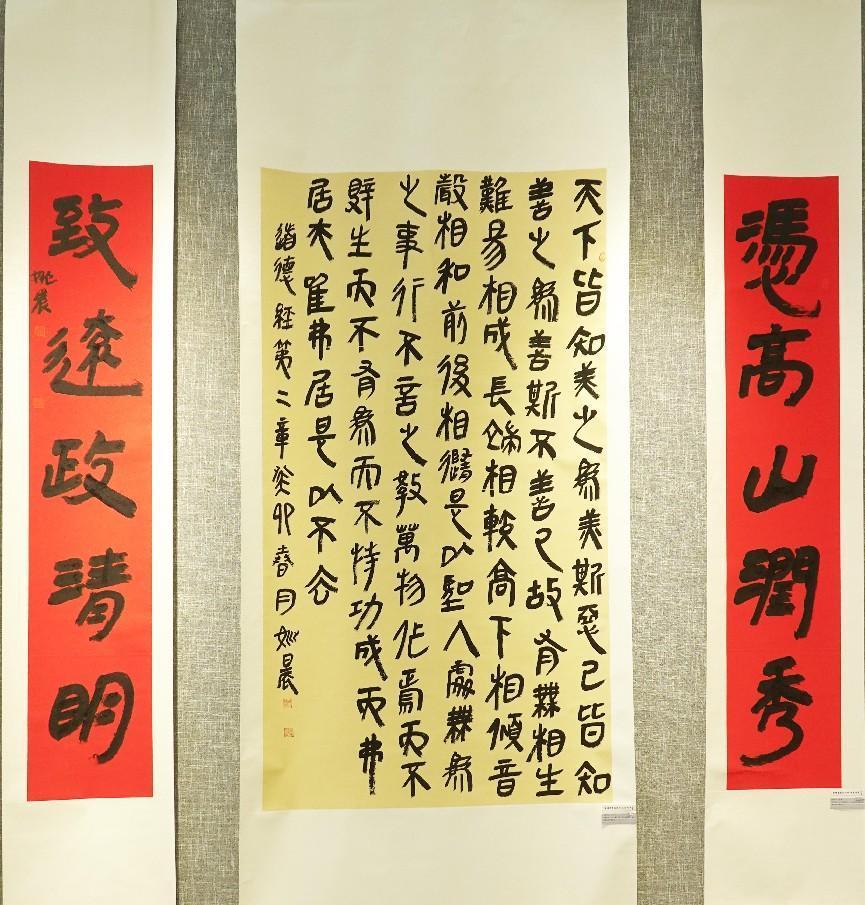 憑高山潤秀
天下皆知美之為美斯惡已皆知
善之為善斯不善已故有無相生
難易相成長短相較高下相傾音
聲相和前後相隨是以聖人處無為
之事行不言之教萬物作焉而不
辭生而不有為而不恃功成而弗
居夫唯弗居是以不去
道德經第二章癸卯春月姚晨
致遠政清明
姚晨